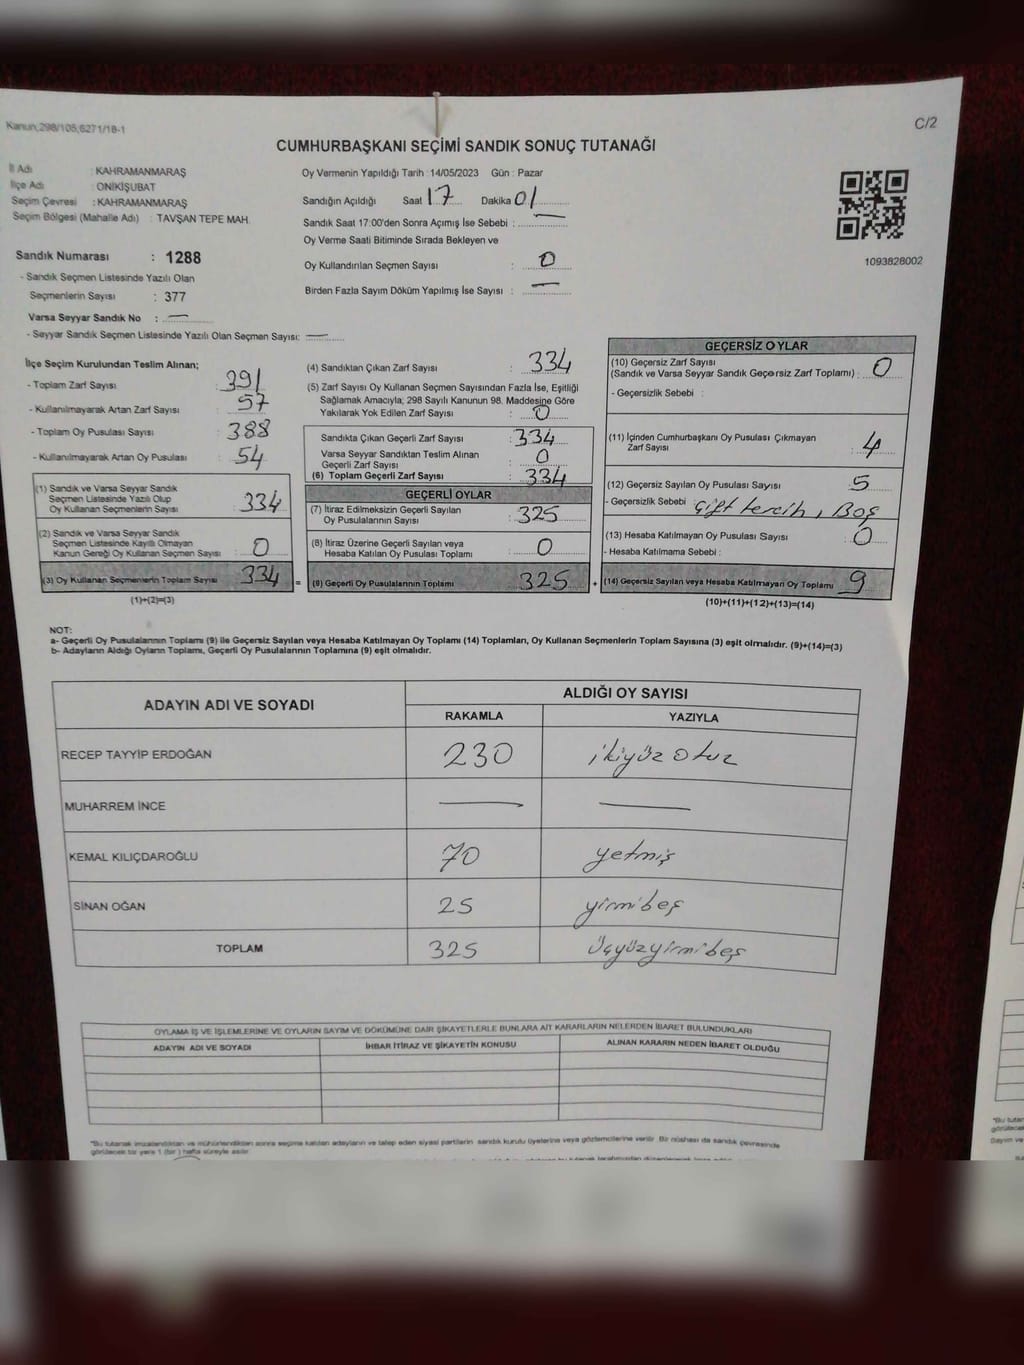 Kanun,298/105,6271/18-1
C/2
CUMHURBAŞKANI SEÇİMİ SANDIK SONUÇ TUTANAĞI
İl Adı : KAHRAMANMARAŞ
İlçe Adı : ONİKİŞUBAT
Seçim Çevresi : KAHRAMANMARAŞ
Seçim Bölgesi (Mahalle Adı) : TAVŞAN TEPE MAH.
Sandık Numarası : 1288
- Sandık Seçmen Listesinde Yazılı Olan
Seçmenlerin Sayısı : 377
Varsa Seyyar Sandık No : —
- Seyyar Sandık Seçmen Listesinde Yazılı Olan Seçmen Sayısı: —
Oy Vermenin Yapıldığı Tarih : 14/05/2023 Gün : Pazar
Sandığın Açıldığı Saat 17 Dakika 01
Sandık Saat 17:00'den Sonra Açımış İse Sebebi : —
Oy Verme Saati Bitiminde Sırada Bekleyen ve
Oy Kullandırılan Seçmen Sayısı : 0
Birden Fazla Sayım Döküm Yapılmış İse Sayısı : —
1093828002
İlçe Seçim Kurulundan Teslim Alınan;
- Toplam Zarf Sayısı : 391
- Kullanılmayarak Artan Zarf Sayısı : 57
- Toplam Oy Pusulası Sayısı : 388
- Kullanılmayarak Artan Oy Pusulası : 54
(1) Sandık ve Varsa Seyyar Sandık
Seçmen Listesinde Yazılı Olup
Oy Kullanan Seçmenlerin Sayısı : 334
(2) Sandık ve Varsa Seyyar Sandık
Seçmen Listesinde Kayıtlı Olmayan
Kanun Gereği Oy Kullanan Seçmen Sayısı : 0
(3) Oy Kullanan Seçmenlerin Toplam Sayısı : 334 =
(1)+(2)=(3)
(4) Sandıktan Çıkan Zarf Sayısı : 334
(5) Zarf Sayısı Oy Kullanan Seçmen Sayısından Fazla İse, Eşitliği
Sağlamak Amacıyla; 298 Sayılı Kanunun 98. Maddesine Göre
Yakılarak Yok Edilen Zarf Sayısı : 0
Sandıkta Çıkan Geçerli Zarf Sayısı : 334
Varsa Seyyar Sandıktan Teslim Alınan
Geçerli Zarf Sayısı : 0
(6) Toplam Geçerli Zarf Sayısı : 334
GEÇERLİ OYLAR
(7) İtiraz Edilmeksizin Geçerli Sayılan
Oy Pusulalarının Sayısı : 325
(8) İtiraz Üzerine Geçerli Sayılan veya
Hesaba Katılan Oy Pusulası Toplamı : 0
(9) Geçerli Oy Pusulalarının Toplamı : 325 +
GEÇERSİZ OYLAR
(10) Geçersiz Zarf Sayısı
(Sandık ve Varsa Seyyar Sandık Geçersiz Zarf Toplamı) : 0
- Geçersizlik Sebebi :
(11) İçinden Cumhurbaşkanı Oy Pusulası Çıkmayan
Zarf Sayısı : 4
(12) Geçersiz Sayılan Oy Pusulası Sayısı : 5
- Geçersizlik Sebebi : Çift tercih, Boş
(13) Hesaba Katılmayan Oy Pusulası Sayısı : 0
- Hesaba Katılmama Sebebi :
(14) Geçersiz Sayılan veya Hesaba Katılmayan Oy Toplamı : 9
(10)+(11)+(12)+(13)=(14)
NOT:
a- Geçerli Oy Pusulalarının Toplamı (9) ile Geçersiz Sayılan veya Hesaba Katılmayan Oy Toplamı (14) Toplamları, Oy Kullanan Seçmenlerin Toplam Sayısına (3) eşit olmalıdır. (9)+(14)=(3)
b- Adayların Aldığı Oyların Toplamı, Geçerli Oy Pusulalarının Toplamına (9) eşit olmalıdır.
ADAYIN ADI VE SOYADI
ALDIĞI OY SAYISI
RAKAMLA YAZIYLA
RECEP TAYYİP ERDOĞAN 230 ikiyüz otuz
MUHARREM İNCE — —
KEMAL KILIÇDAROĞLU 70 yetmiş
SİNAN OĞAN 25 yirmibeş
TOPLAM 325 üçyüzyirmibeş
OYLAMA İŞ VE İŞLEMLERİNE VE OYLARIN SAYIM VE DÖKÜMÜNE DAİR ŞİKAYETLERLE BUNLARA AİT KARARLARIN NELERDEN İBARET BULUNDUKLARI
ADAYIN ADI VE SOYADI İHBAR İTİRAZ VE ŞİKAYETİN KONUSU ALINAN KARARIN NEDEN İBARET OLDUĞU
*Bu tutanak imzalandıktan ve mühürlendikten sonra seçime katılan adayların ve talep eden siyasi partilerin sandık kurulu üyelerine veya gözlemcilerine verilir. Bir nüshası da sandık çevresinde
görülecek bir yere 1 (bir ) hafta süreyle asılır.